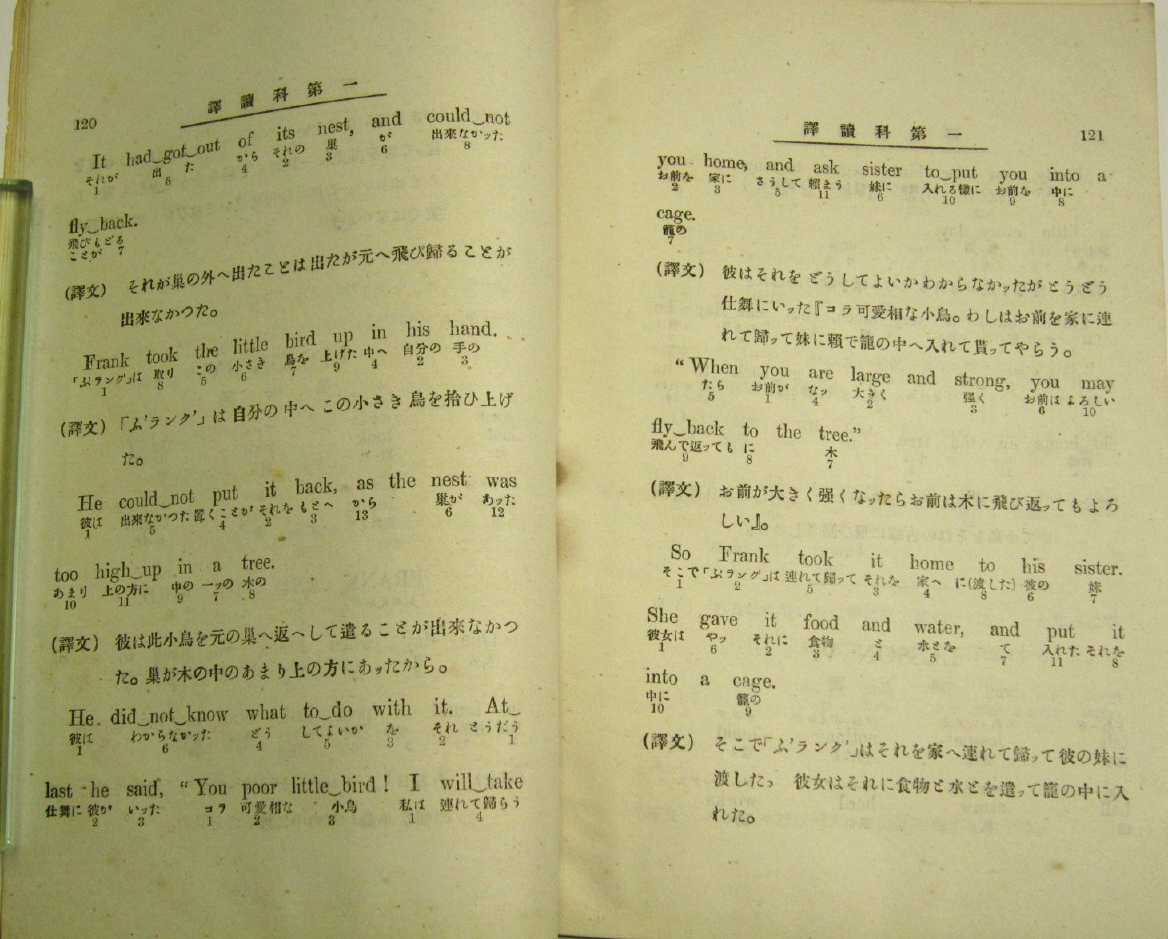 120
譯讀科第一
It had‿got‿out of its nest, and could‿not
それが 出た から それの 巣 が 出來なかッた
1 5 4 2 3 6 8
fly‿back.
飛びもどる
ことが 7
(譯文) それが巣の外へ出たことは出たが元へ飛び歸ることが
出來なかつた。
Frank took the little bird up in his hand.
「ふ'ランク'」は 取り この 小さき 鳥を 上げた 中へ 自分の 手の
1 8 5 6 7 9 4 2 3
(譯文) 「ふ'ランク'」は自分の中へこの小さき鳥を拾ひ上げ
た。
He could‿not put it back, as the nest was
彼は 出來なかつた 置くことが それを もとへ から 巣が あッた
1 5 4 2 3 13 6 12
too high‿up in a tree.
あまり 上の方に 中の 一ッの 木の
10 11 9 7 8
(譯文) 彼は此小鳥を元の巣へ返へして遣ることが出來なかつ
た。巣が木の中のあまり上の方にあッたから。
He did‿not‿know what to‿do with it. At‿
彼は わからなかッた どう してよいか を それ とうだう
1 6 4 5 3 2 1
last he said, “You poor little‿bird! I will‿take
仕舞に 彼が いッた コラ 可愛相な 小鳥 私は 連れて歸らう
2 3 1 2 3 1 4
譯讀科第一
121
you home, and ask sister to‿put you into a
お前を 家に さうして 頼まう 妹に 入れる樣に お前を 中に
2 3 5 11 6 10 9 8
cage.
籠の
7
(譯文) 彼はそれをどうしてよいかわからなかッたがとうどう
仕舞にいッた『コラ可愛相な小鳥。わしはお前を家に連
れて歸ッて妹に頼で籠の中へ入れて貰ッてやらう。
“When you are large and strong, you may
たら お前が なッ 大きく 強く お前は よろしい
5 1 4 2 3 6 10
fly‿back to the tree.”
飛んで返ッても に 木
9 8 7
(譯文) お前が大きく強くなッたらお前は木に飛び返ッてもよろ
しい』。
So Frank took it home to his sister.
そこで 「ふ'ランク'」は 連れて歸ッて それを 家へ に(渡した) 彼の 妹
1 2 5 3 4 8 6 7
She gave it food and water, and put it
彼女は やッ それに 食物 と 水とを て 入れた それを
1 6 2 3 4 5 7 11 8
into a cage.
中に 籠の
10 9
(譯文) そこで「ふ'ランク'」はそれを家へ連れて歸ッて彼の妹に
渡した。 彼女はそれに食物と水とを遣ッて籠の中に入
れた。